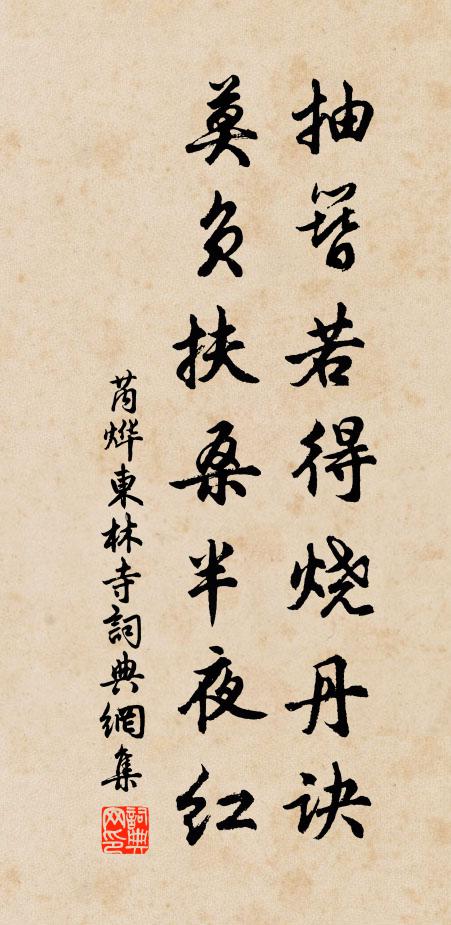 抽簪若得烧丹诀
莫负扶桑半夜红
芮烨東林寺詞典網集
詞典网印